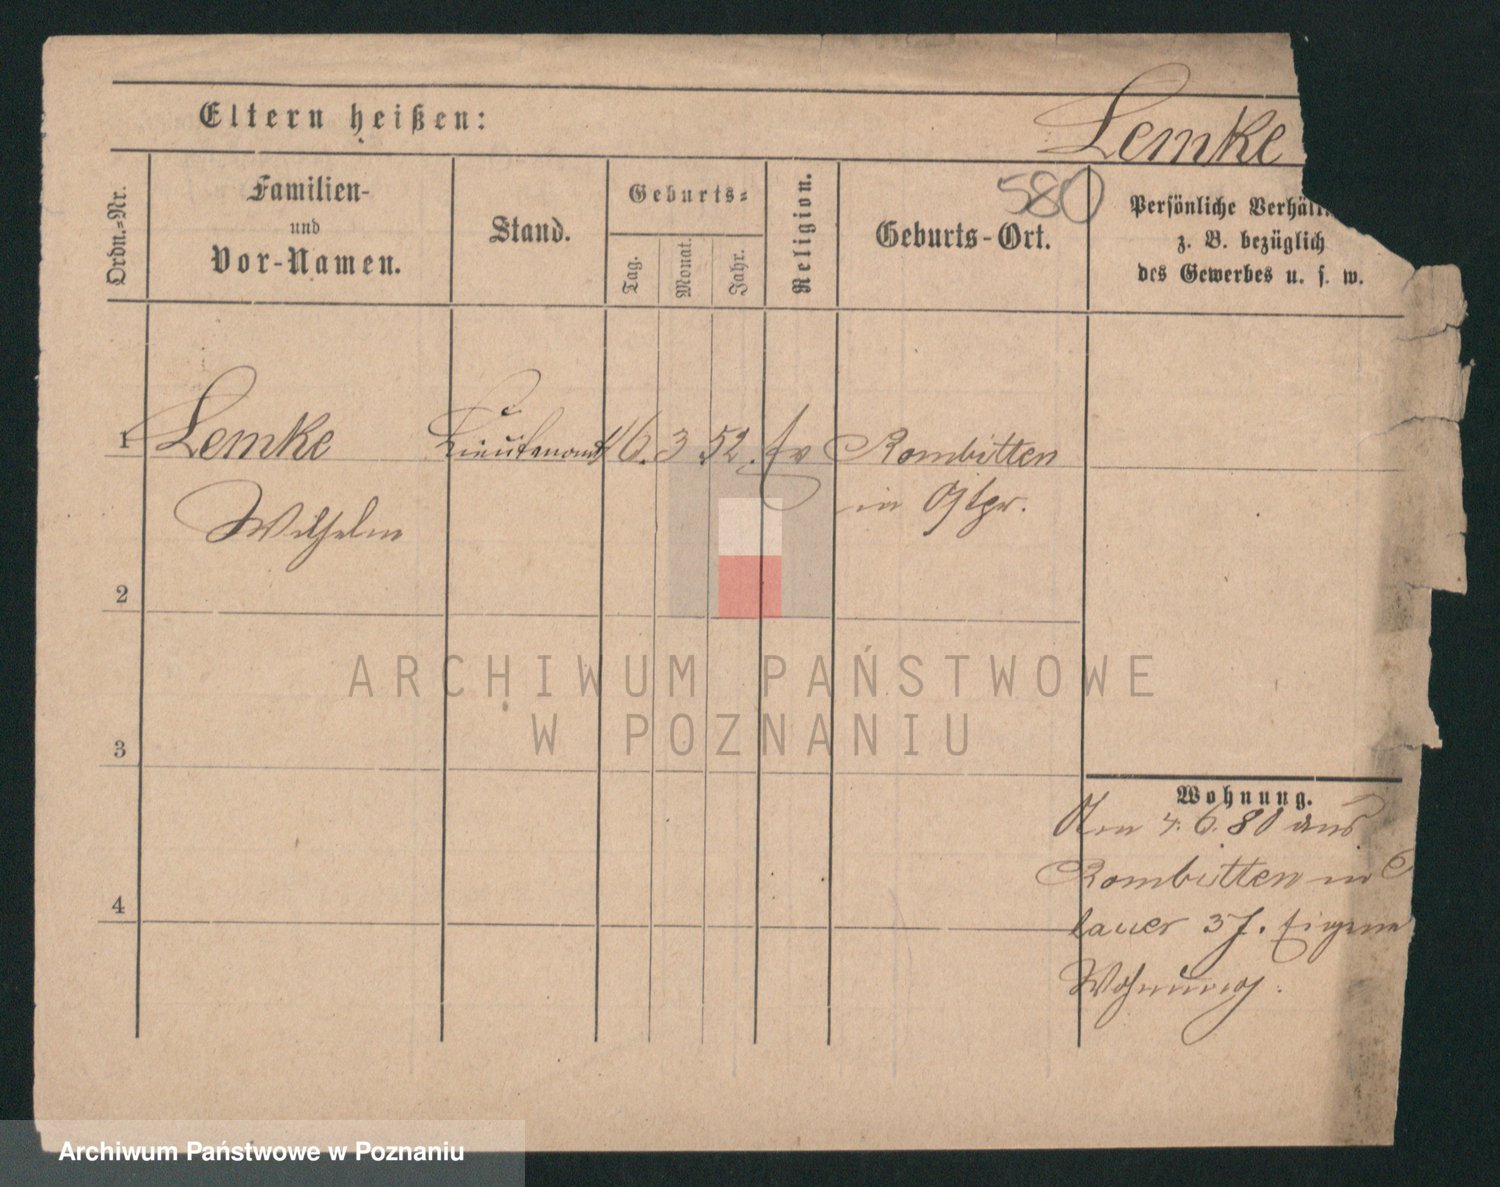 Eltern heißen:
Lemke
580
Ordn.-Nr.
Familien-
und
Vor-Namen.
Stand.
Geburts-
Tag.
Monat.
Jahr.
Religion.
Geburts-Ort.
Persönliche
z. B. bezüglich
des Gewerbes u. s. w.
1 Lemke Lieutenant 16. 3 52. Ev Rombitten
Wilhelm in Ostpr.
2
3
4
Wohnung.
Am 4. 6. 80 aus
Rombitten in
lauer 37. Eigene
Wohnung.
ARCHIWUM PAŃSTWOWE
W POZNANIU
Archiwum Państwowe w Poznaniu